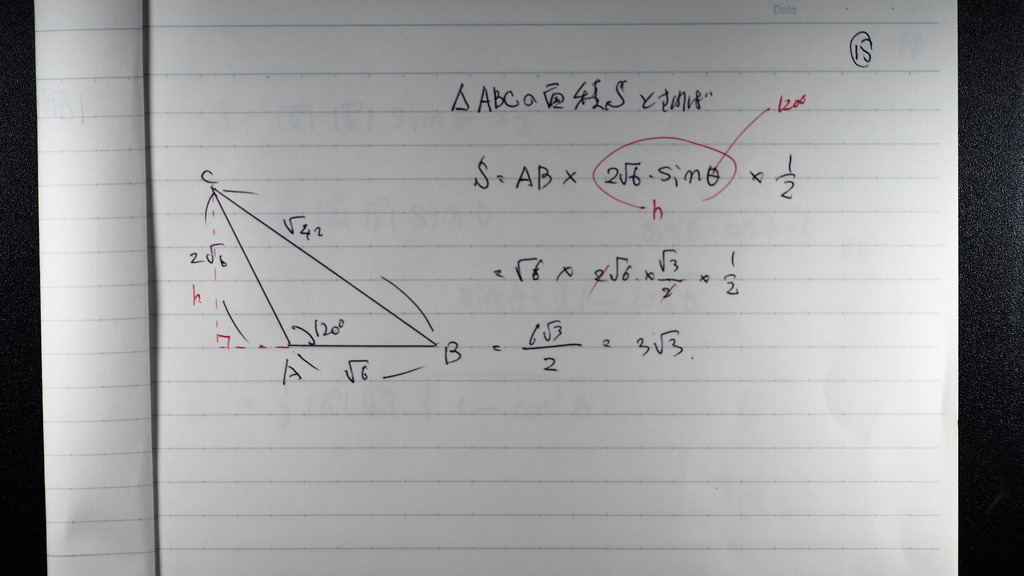 Date
⑮
△ABCの面積Sとすれば
120°
S = AB × 2√6・sinθ × 1/2
h
= √6 × 2√6 × √3/2 × 1/2
= 6√3/2 = 3√3.
C
√42
2√6
h
120°
A
√6
B